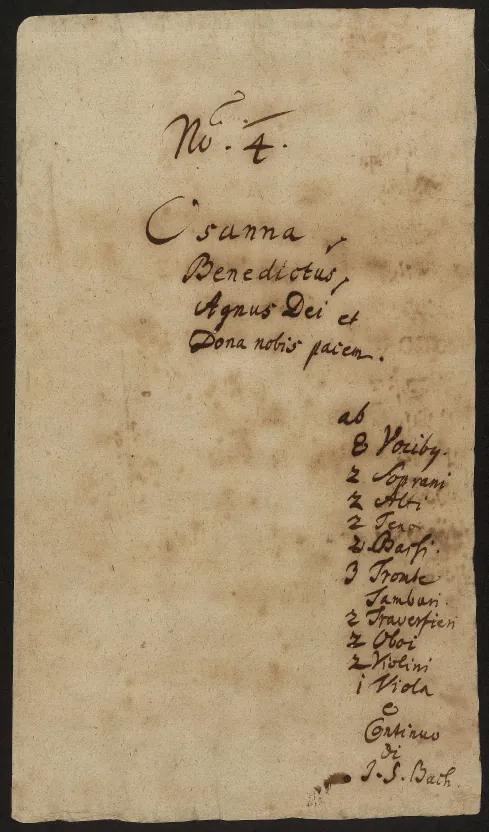 No. 4.
Osanna,
Benedictus,
Agnus Dei et
Dona nobis pacem.
ab
8 Vociby.
2 Soprani
2 Alti
2 Teno
2 Bassi.
3 Trombe
Tamburi.
2 Traversieri
2 Oboi
2 Violini
1 Viola
e
Continuo
di
J. S. Bach.